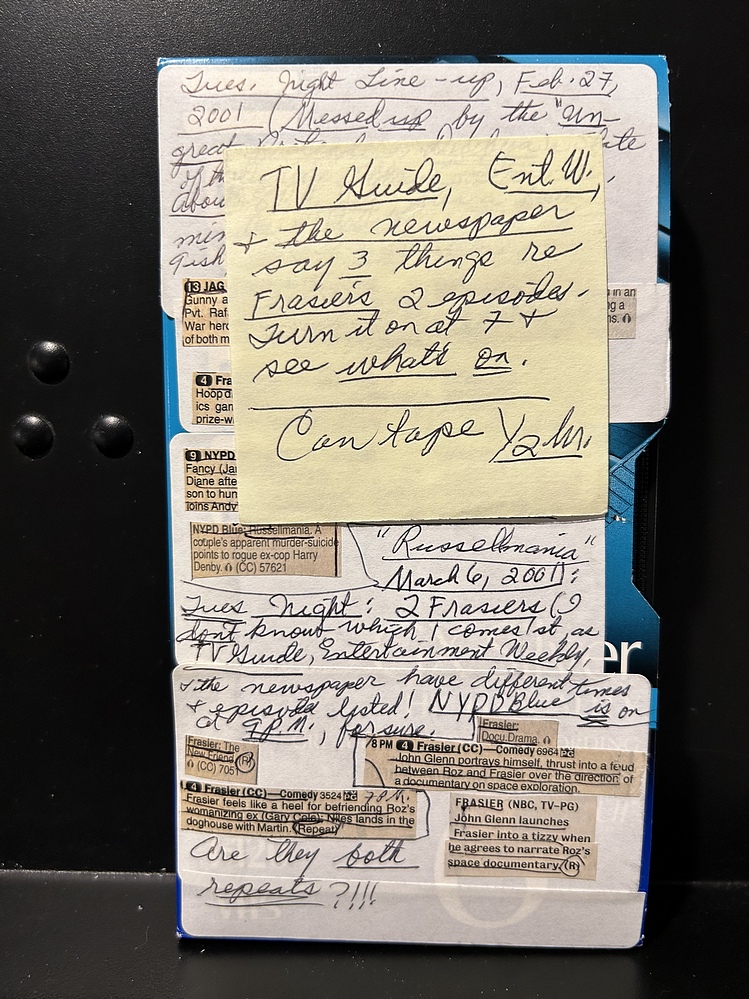 Tues. Night Line-up, Feb. 27,
2001 (Messed up by the "Un-
great
of th
Abou
min
Gish
TV Guide, Ent. W.,
+ the newspaper
say 3 things re
Frasier's 2 episodes.
Turn it on at 7 +
see what's on.
Can tape 1/2 hr.
13 JAG
Gunny a
Pvt. Raf
War herc
of both m
in an
ng a
ns.
4 Fra
Hoop d
ics gan
prize-w
9 NYPD
Fancy (Jar
Diane afte
son to hun
joins Andy
NYPD Blue: Russellmania. A
couple's apparent murder-suicide
points to rogue ex-cop Harry
Denby. (CC) 57621
"Russellmania"
March 6, 2001):
Tues Night: 2 Frasiers (I
don't know which 1 comes 1st, as
TV Guide, Entertainment Weekly,
er
+ the newspaper have different times
+ episodes listed! NYPD Blue is on
at 9 P.M., for sure.
Frasier:
Docu.Drama.
Frasier: The
New Friend (R)
(CC) 705
8 PM 4 Frasier (CC)—Comedy 6964
John Glenn portrays himself, thrust into a feud
between Roz and Frasier over the direction of
a documentary on space exploration.
4 Frasier (CC)—Comedy 3524 7 P.M.
Frasier feels like a heel for befriending Roz's
womanizing ex (Gary Cole); Niles lands in the
doghouse with Martin. (Repeat)
FRASIER (NBC, TV-PG)
John Glenn launches
Frasier into a tizzy when
he agrees to narrate Roz's
space documentary. (R)
Are they both
repeats?!!!